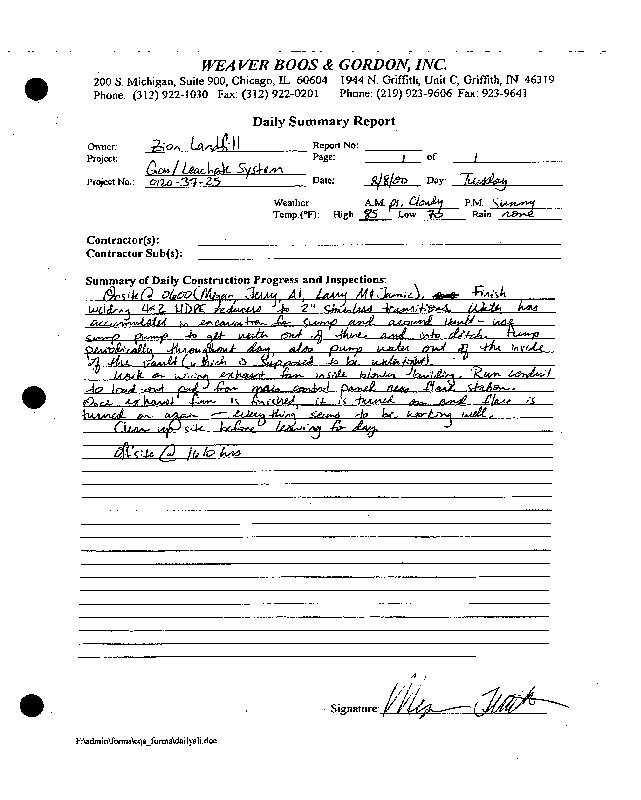 WEAVER BOOS & GORDON, INC.
200 S. Michigan, Suite 900, Chicago, IL 60604 1944 N. Griffith, Unit C, Griffith, IN 46319
Phone: (312) 922-1030 Fax: (312) 922-0201 Phone: (219) 923-9606 Fax: 923-9641
Daily Summary Report
Owner: Zion Landfill Report No:
Project: Gas/Leachate System Page: 1 of 1
Project No.: 0120-37-25 Date: 8/8/00 Day: Tuesday
Weather A.M. pt. Cloudy P.M. Sunny
Temp.(°F): High 85 Low 75 Rain none
Contractor(s):
Contractor Sub(s):
Summary of Daily Construction Progress and Inspections:
Onsite @ 0600 (Jerry, Al, Larry Mc, Jamie). Finish
welding 4x2 HDPE reducers to 2" stainless transitions. Water has
accumulated in excavation for sump and around vault - use
sump pump to get water out of there and into ditch. Pump
periodically throughout day also pump water out of the inside
of the vault (which is supposed to be watertight).
Work on wiring exhaust fan inside blower building. Run conduit
to load out pad for main control panel near flare station.
Once exhaust fan is finished, it is turned on and flare is
turned on again - everything seems to be working well.
Clean up site before leaving for day
Offsite @ 1610 hrs
Signature
F:\admin\forms\cqa_forms\dailyali.doc